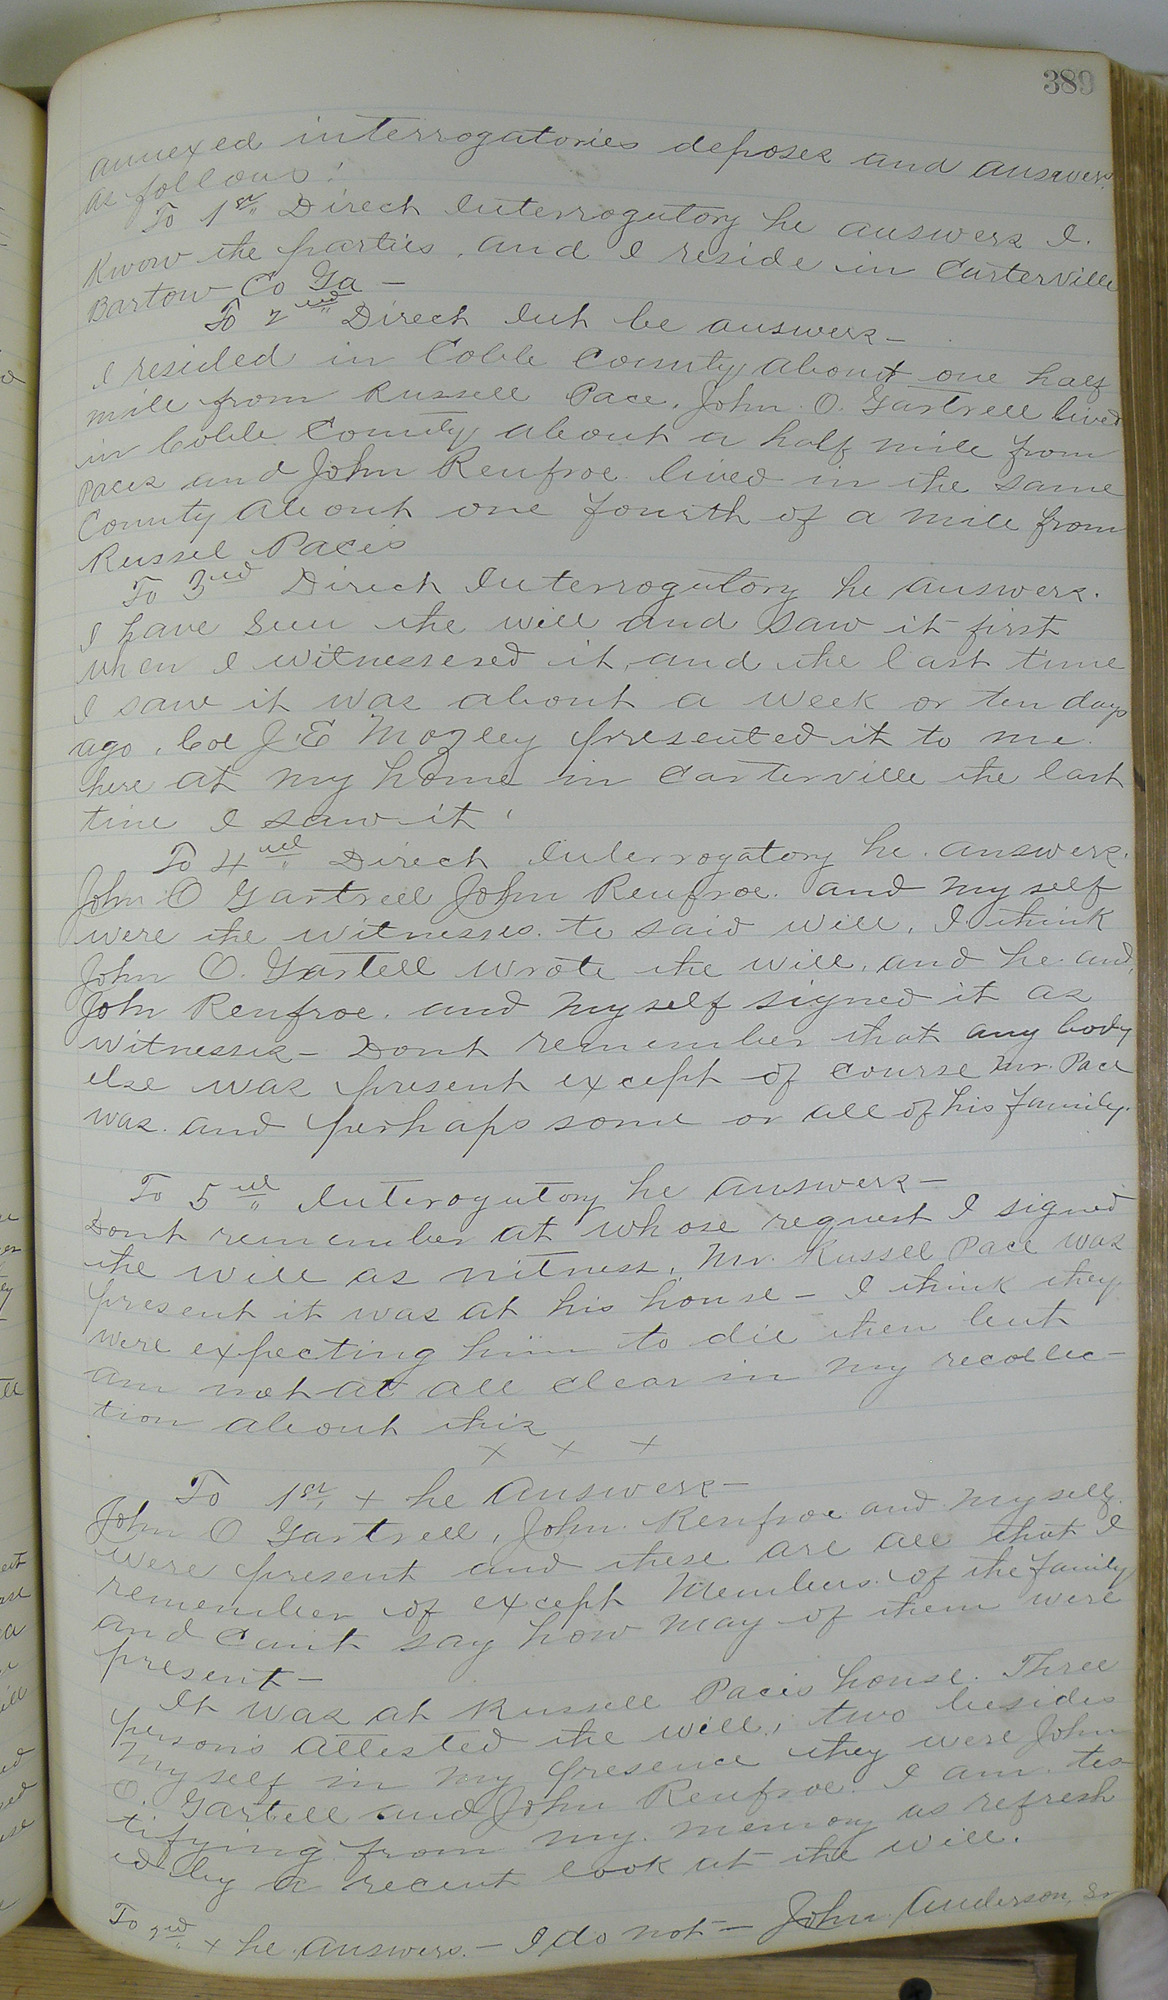 389
annexed interrogatories deposes and answers
as follows:
To 1st Direct Interrogatory he answers I.
Know the parties, and I reside in Carterville
Bartow Co Ga —
To 2nd Direct Int he answers —
I resided in Cobb County about one half
mile from Russell Pace, John O. Gartrell lived
in Cobb County about a half mile from
Paces and John Renfroe lived in the same
County about one fourth of a mile from
Russel Paces
To 3rd Direct Interrogatory he answers.
I have seen the will and saw it first
when I witnessesed it, and the last time
I saw it was about a week or ten days
ago, Col J. E Mozley presented it to me.
here at my home in Carterville the last
time I saw it.
To 4 Direct Interrogatory he answers.
John O Gartrell John Renfroe. and my self
were the witnesses. to said will, I think
John O. Gartell wrote the will, and he and,
John Renfroe. and my self signed it as
witnesses — Dont remember that any body
else was present except of course Mr. Pace
was. and perhaps some or all of his family.
To 5 Interogutory he answers —
Dont remember at whose request I signed
the will as witness, Mr. Russel Pace was
present it was at his house — I think they
were expecting him to die then but
am not at all clear in my recollec-
tion about this
x x x
To 1st x he Answers —
John O Gartrell, John Renfroe and my self
were present and these are all that I
remember of except Members. of the family
and can't say how may of them were
present —
It was at Russell Paces house Three
persons attested the will, two besides
my self in my presence they were John
O. Gartell and John Renfroe. I am tes-
tifying from my memory as refresh
ed by a recent look at the will.
To 2nd x he answers. — I do not — John Anderson, Sr